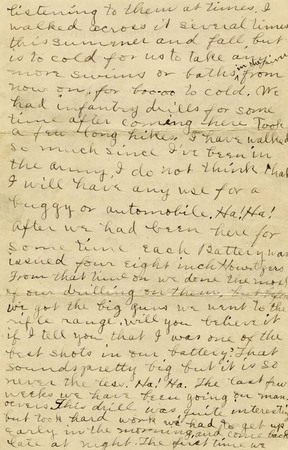 listening to them at times. I
walked across it several times
this summer and fall, but
is to cold for us to take any
more swims or baths, in the river from
now on, for to cold. We
had infantry drills for some
time after coming here Took
a few long hikes, I have walked
so much since I've been in
the army, I do not think that
I will have any use for a
buggy or automobile, Ha! Ha!
After we had been here for
some time each Battery was
issued four eight inch Howitzers
From that time on we done the most
of our drilling on them,
we got the big guns we went to the
rifle range, will you believe it
if I tell you that I was one of the
best shots in our battery? That
sounds pretty big but it is so
never the less. Ha! Ha. The last few
weeks we have been going on man-
overs. This drill was quite interesting
but took hard work we had to get up
early in the morning, and come back
late at night. The first time we